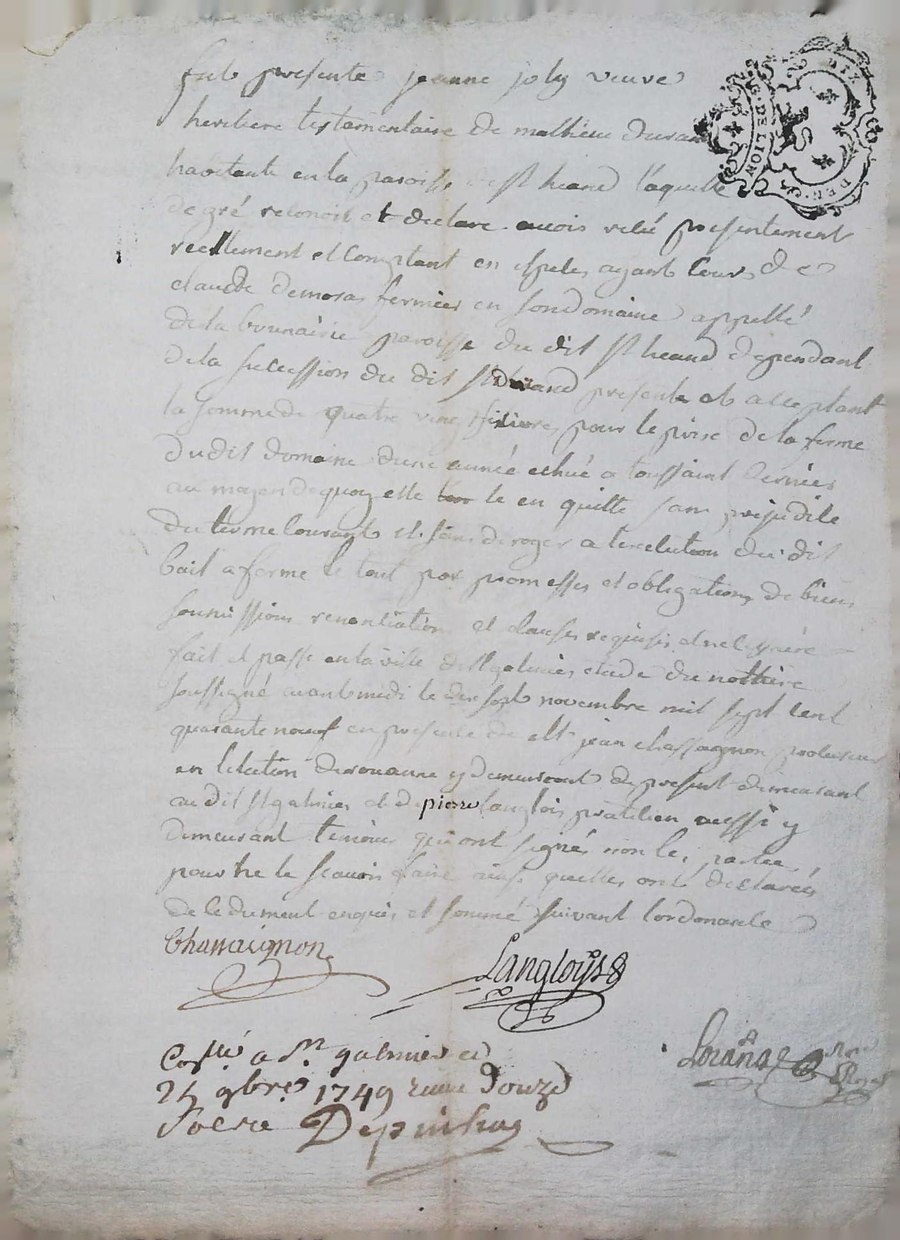 fut presente jeanne joly veuve
heritiere testamentaire de mathieu duran
habitante en la paroisse de st heand laquelle
de gré reconoit et declare avoir recu presentement
reellement et comptant en especes ayant cours de
claude demoras fermier en son domaine appellé
de la bounairie paroisse du dit st heand dependant
de la succession du dit durand present et acceptant
la somme de quatre vingt livres pour le prix de la ferme
du dit domaine d'une année echuë a toussaint dernier
au moyen de quoy elle le en quitte sans prejudice
du terme courant et sans deroger a lexecution du dit
bail a ferme le tout par promesses et obligations de biens
soumissions renontiations et clauses requises et necessaire
fait et passé en la ville de st galmier etude du nottaire
soussigné avant midi le dix sept novembre mil sept cent
quarante neuf en presence de jean chassagnon procureur
en l'election de rouanne y demeurant de present demeurant
au dit st galmier et de pierre langlois praticien aussi y
demeurant temoins qui ont signés non les parties
pour ne le scavoir faire ainsi quelles ont declarés
de ce dument enquis et sommé suivant lordonance
Chassaignon
Langloys
Lorang
Coñllé a st galmier ce
24 9bre 1749 recu douze
sols